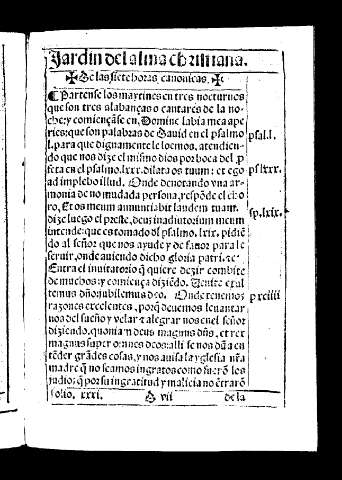 Jardin del alma christiana.
✠ De las siete horas canonicas. ✠
¶ Partense los maytines en tres nocturnos
que son tres alabanças o cantares de la no-
che: y comiençãse en, Domine labia mea ape
ries: que son palabras de Dauid en el psalmo
l. para que dignamente le loemos, atendien-
do que nos dize el mismo dios por boca del p
feta en el psalmo. lxxx. dilata os tuum: et ego
ad implebo illud. Onde denotando vna ar-
monia de no mudada persona, respõde el cho
ro, Et os meum annuntiabit laudem tuam.
dize luego el preste, deus in adiutorium meum
intende: que es tomado dl psalmo. lxix. pidiẽ
do al señor que nos ayude y de fauor para le
seruir, onde auiendo dicho gloria patri. ꝛc
Entra el inuitatorio q̃ quiere dezir combite
de muchos: y comiença diziẽdo. Uenite exul
temus dño: jubilemus deo. Onde tenemos
razones excelentes, porq̃ deuemos leuantar
nos del sueño y velar ⁊ alegrar nos en el señor
diziendo, quoniã deus magnus dñs, et rex
magnus super omnes deos: alli se nos dã a en
tẽder grãdes cosas, y nos auisa la yglesia nr̃a
madre q̃ no seamos ingratos como fuerõ los
judios: q̃ por su ingratitud y malicia no ẽtrarõ
psal. l.
ps lxxx.
ps. lxix.
p xciiii
folio. xxxi.
D vii
de la